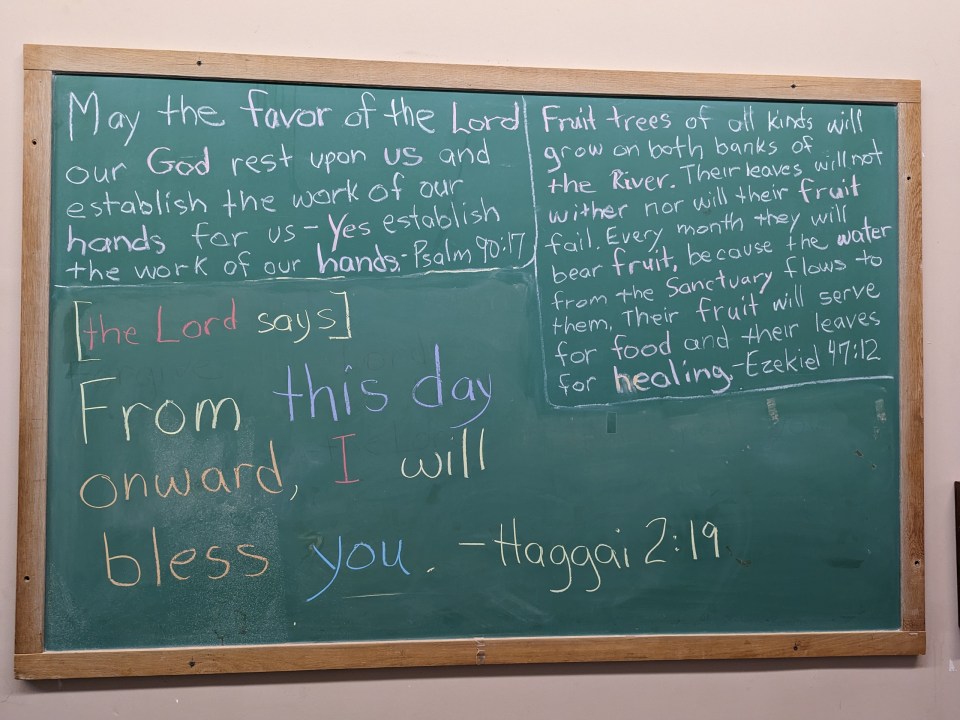 May the favor of the Lord
our God rest upon us and
establish the work of our
hands for us - Yes establish
the work of our hands. - Psalm 90:17
Fruit trees of all kinds will
grow on both banks of
the River. Their leaves will not
wither nor will their fruit
fail. Every month they will
bear fruit, because the water
from the Sanctuary flows to
them. Their fruit will serve
for food and their leaves
for healing. - Ezekiel 47:12
[the Lord says]
From this day
onward, I will
bless you. - Haggai 2:19